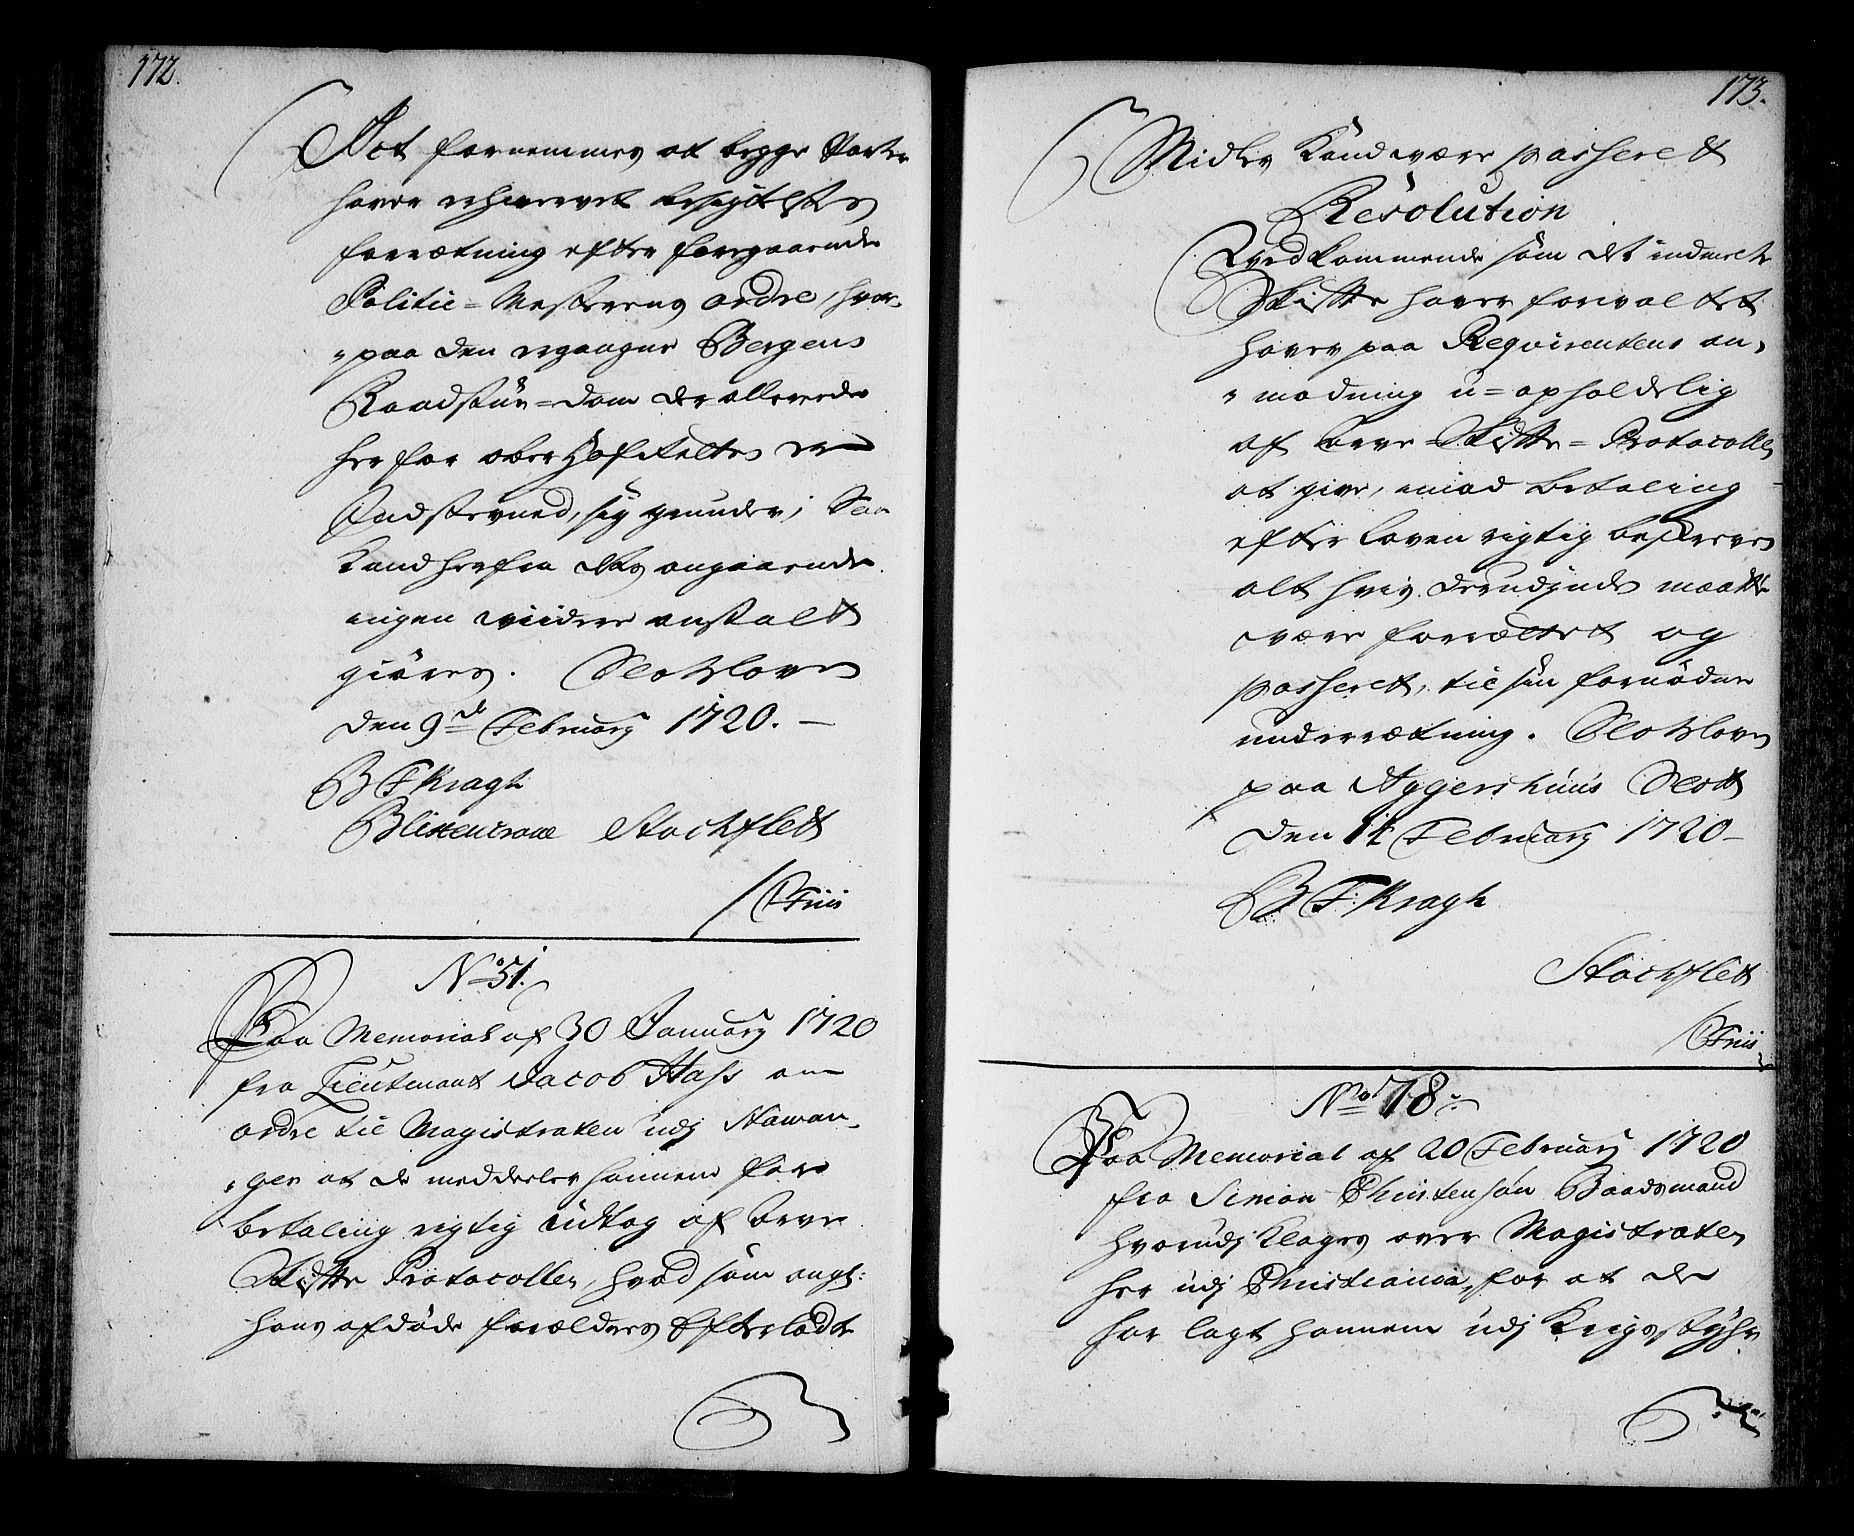 172.
Act fornemmes at begge Parter
haver erhvervet besigtelses
forrætning efter foregaaende
Politie=Mesterens ordre, hvor-
"paa den ergangne Bergens
Raadstue=dom der allerede
her for ober Hof Retten er
Indstevned, sig grunder; Saa
kand herfra des angaaende
ingen viidere anstalt
giøres. Slotzloven
den 9de February 1720.
B F Kragh
Blixencrone Stochflett
/ CFriis
No 51.
Paa Memorial af 30 January 1720
fra Lieutenant Jacob Hass om
ordre til Magistraten udj Stawan-
"ger at de meddeeler hannem for
betaling rigtig udtog af deres
Skiftte Protocoller, hvad som angl:
hans afdøde forælders Efterladte
173.
Midler kand være passerett
Resolution
Vedkommende som det indmelte
Skiftte haver forvaltet
haver paa Reqvirentens an-
"modning u=opholdelig
af deres Skiftte=Protocoller
at give, imod betaling
efter loven rigtig beskreven
alt hvis derudjnden maatte
være forrættet og
passerett, til sin fornødne
underrætning. Slotzloven
paa Aggershuus Slott
den 14 February 1720
B F Kragh
Stochflett
/ CFriis
No 78.
Paa Memorial af 20 February 1720
fra Simon Christensøn Baadsmand
hvorudj klages over Magistraten
her udj Christiania, for at de
har lagt hannem udj Krigsstyhr